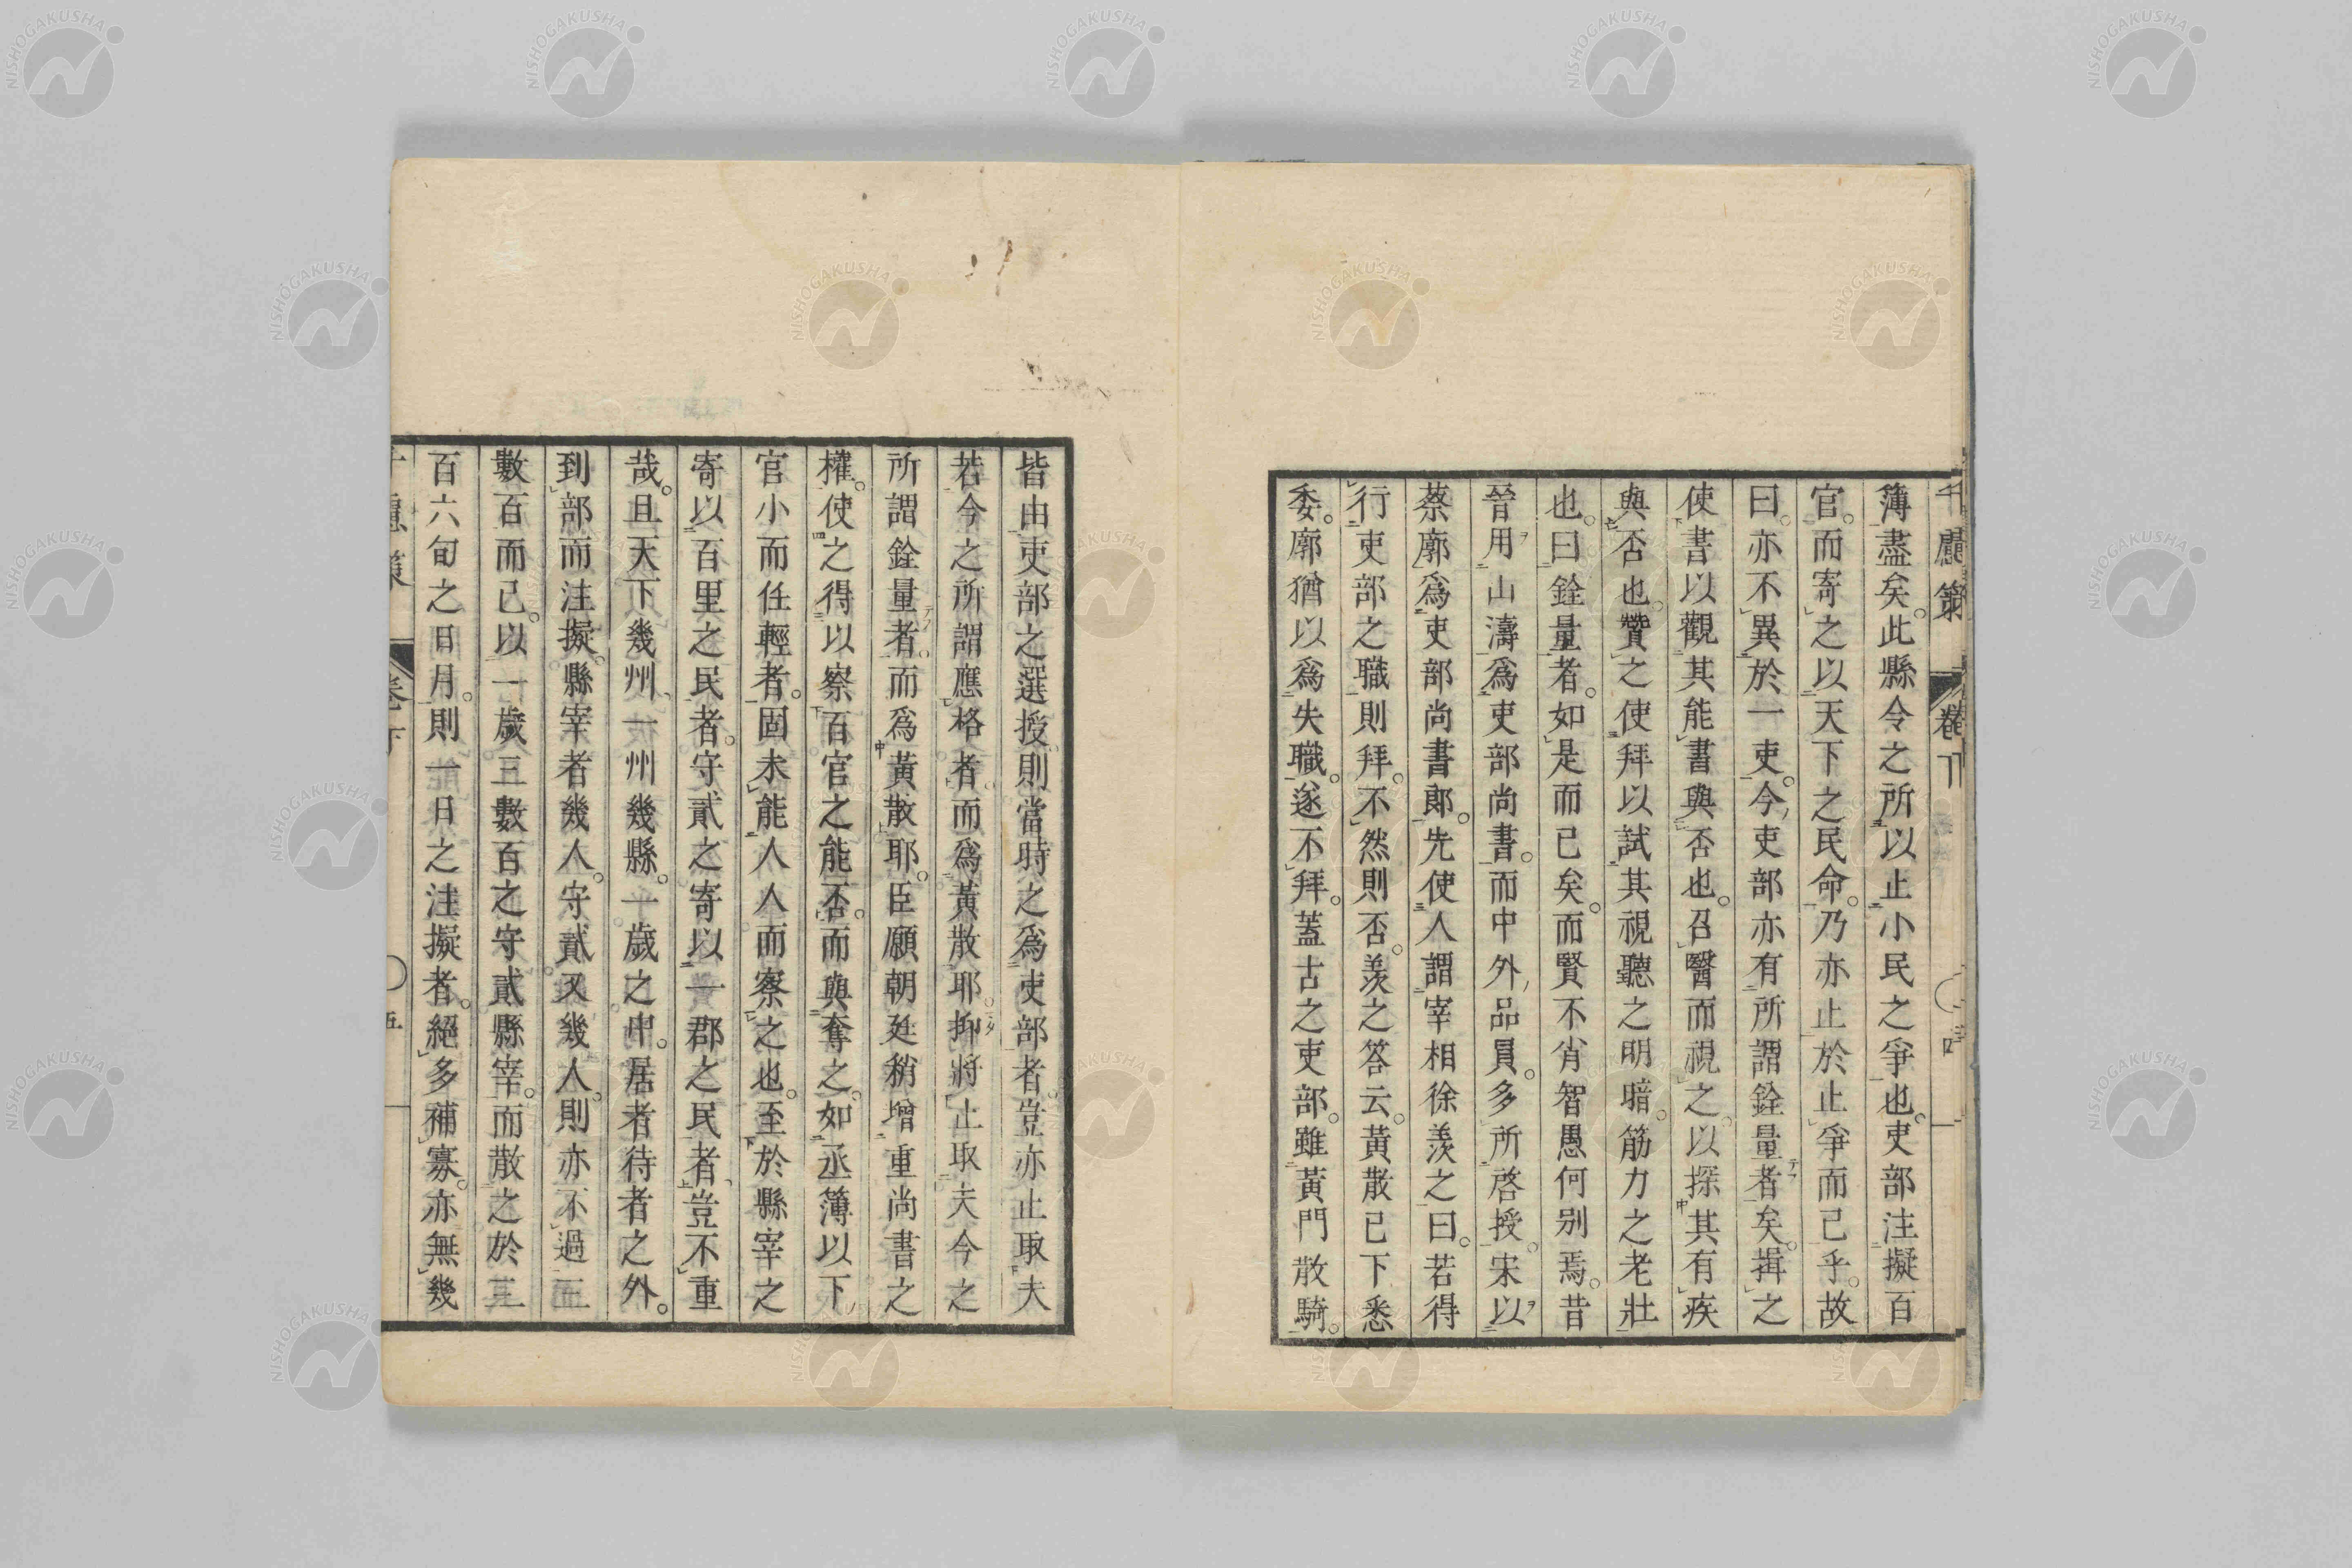 千慮策 卷下 四
簿盡矣此縣令之所以止小民之爭也吏部注擬百
官而寄之以天下之民命乃亦止於止爭而已乎故
曰亦不異於一吏今吏部亦有所謂銓量者矣揖之
使書以觀其能書與否也召醫而視之以探其有疾
與否也贊之使拜以試其視聽之明暗筋力之老壯
也曰銓量者如是而已矣而賢不肖智愚何別焉昔
晉用山濤爲吏部尚書而中外品員多所啓授宋以
蔡廓爲吏部尚書郞先使人謂宰相徐羨之曰若得
行吏部之職則拜不然則否羨之答云黃散已下悉
委廓猶以爲失職遂不拜蓋古之吏部雖黃門散騎
皆由吏部之選授則當時之爲吏部者豈亦止取夫
若今之所謂應格者而爲黃散耶抑將止取夫今之
所謂銓量者而爲黃散耶臣願朝廷稍增重尚書之
權使之得以察百官之能否而與奪之如丞簿以下
官小而任輕者固未能人人而察之也至於縣宰之
寄以百里之民者守貳之寄以一郡之民者豈不重
哉且天下幾州一州幾縣一歲之中居者待者之外
到部而注擬縣宰者幾人守貳又幾人則亦不過三
數百而已以一歲三數百之守貳縣宰而散之於三
百六旬之日月則一日之注擬者絕多補寡亦無幾
千慮策 卷下 五
NISHOGAKUSHA